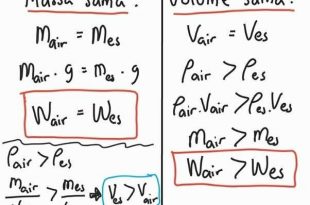 Massa sama:
m_air = m_es
m_air . g = m_es . g
W_air = W_es
ρ_air > ρ_es
m_air > m_es ⇒ V_es > V_air
Volume sama:
V_air = V_es
ρ_air > ρ_es
ρ_air . V_air > ρ_es . V_es
m_air > m_es
W_air > W_es